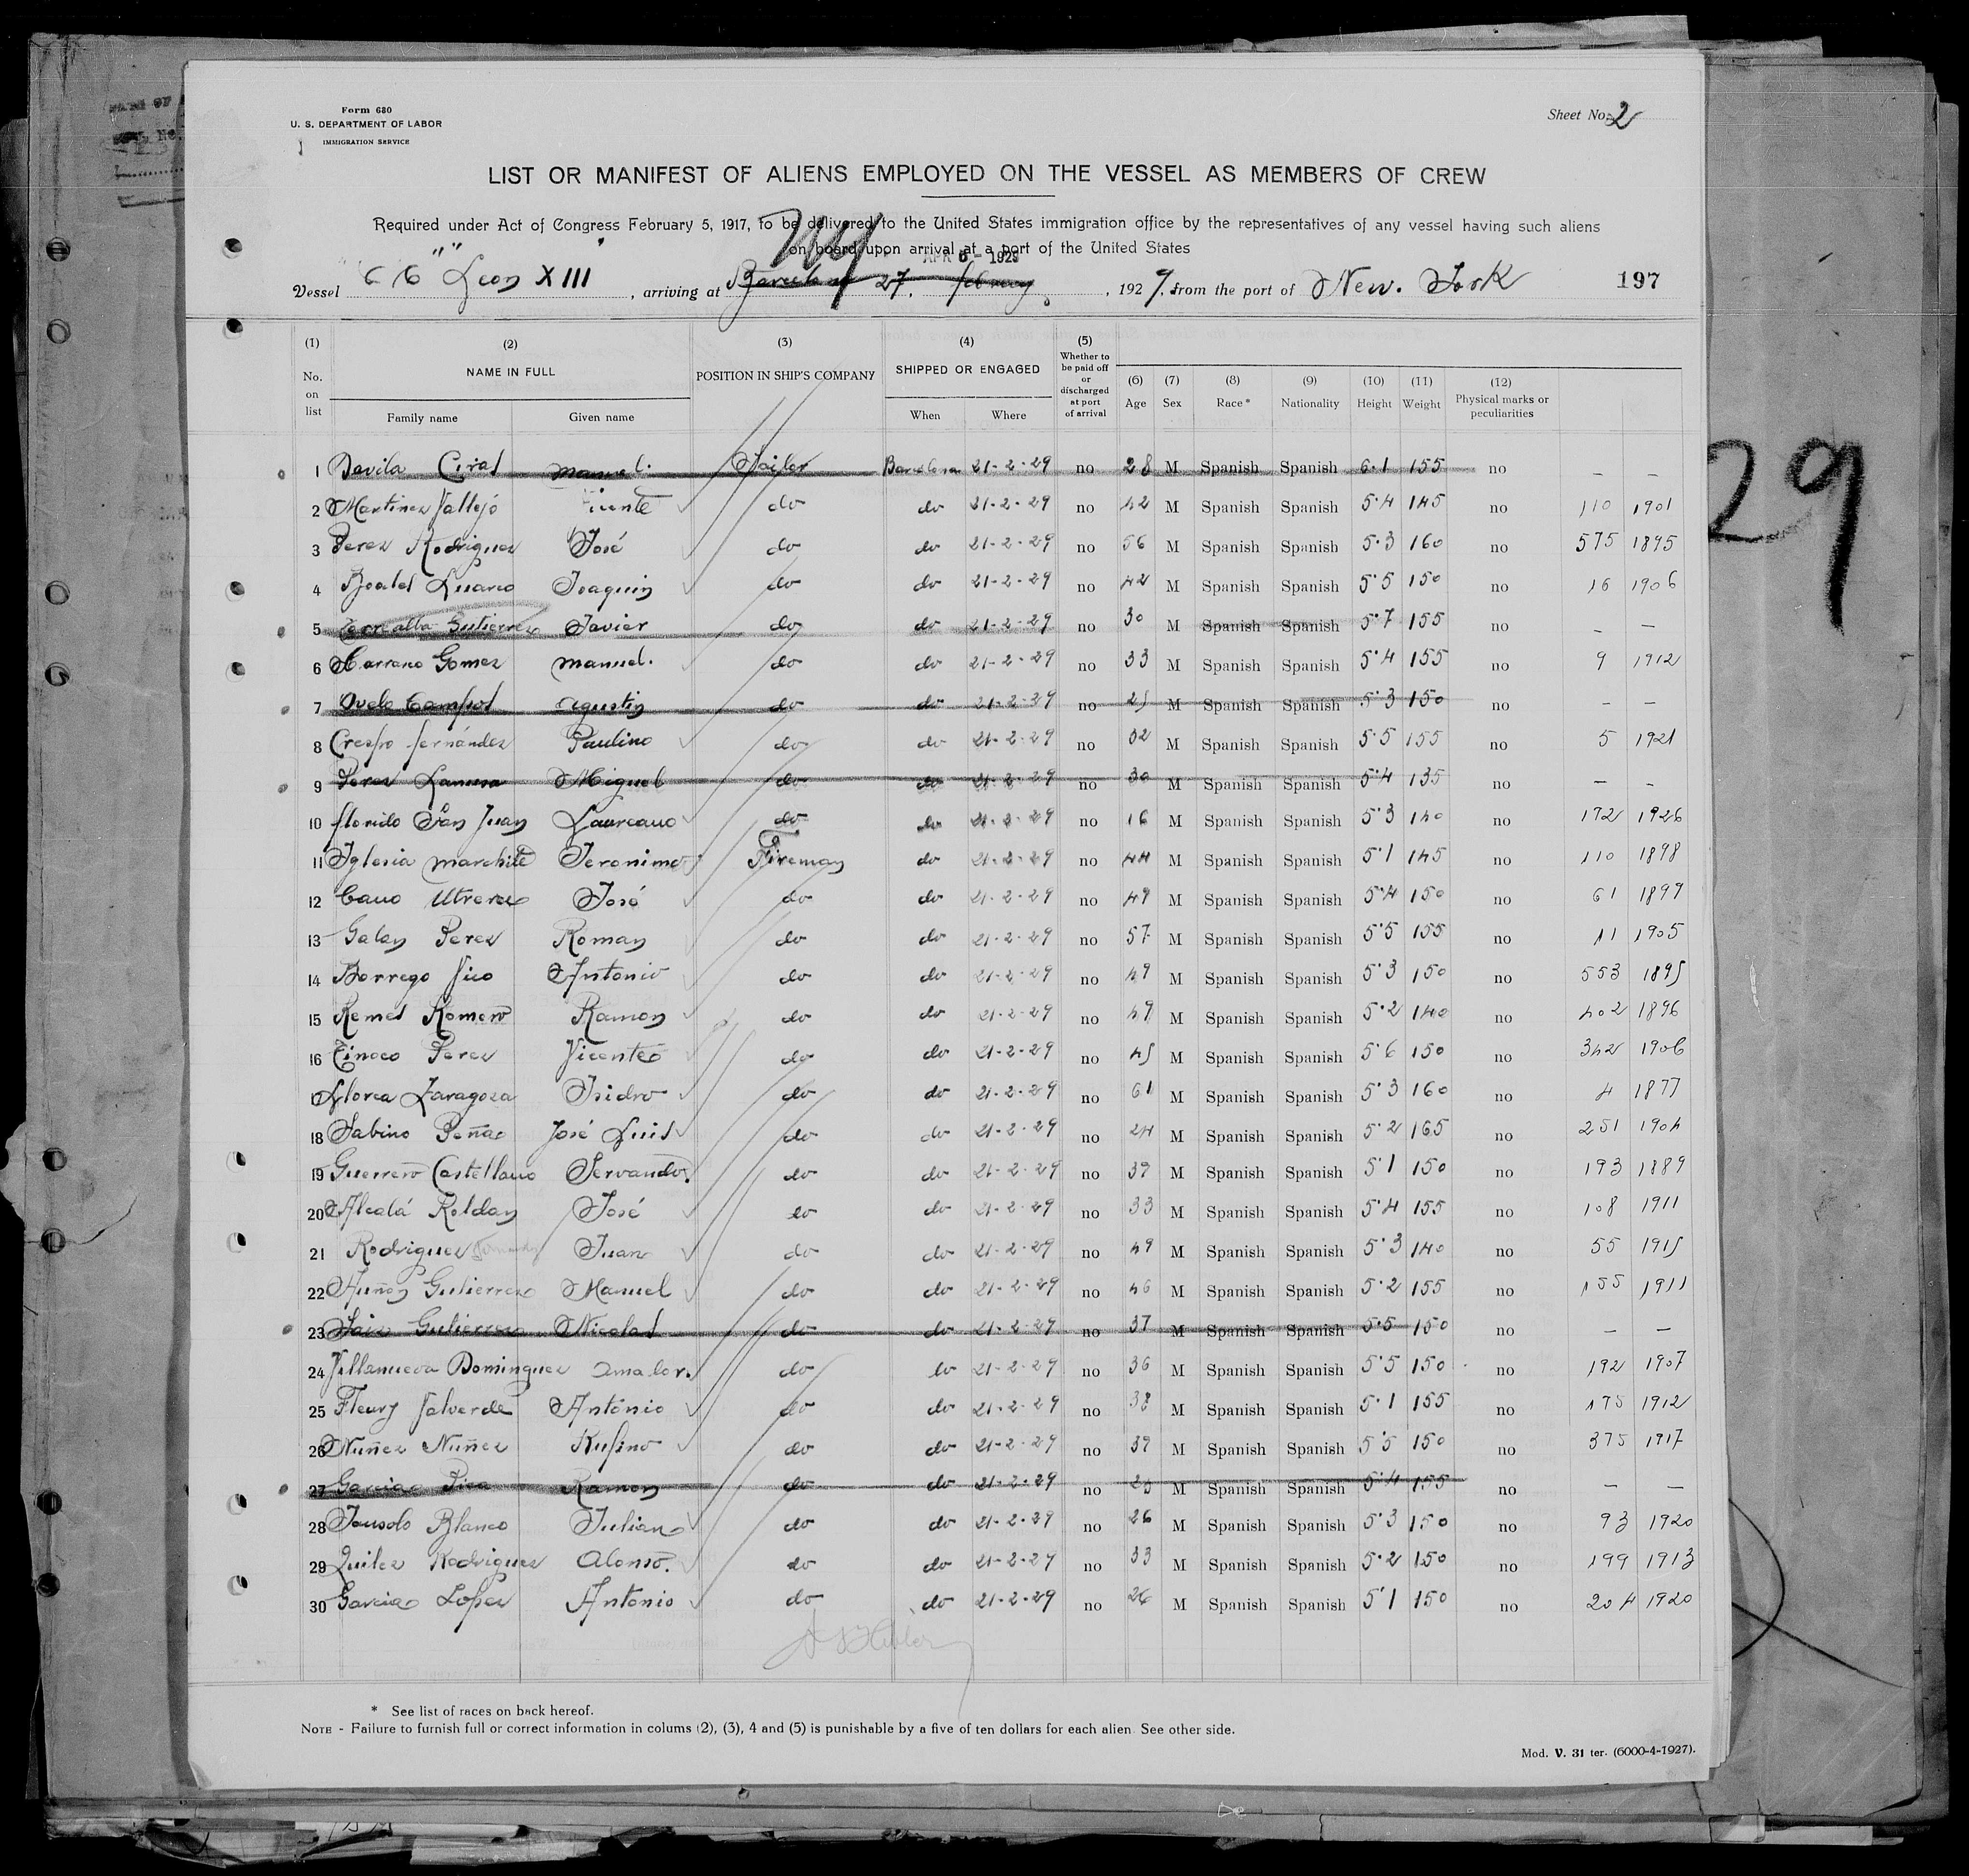 Form 680
U. S. DEPARTMENT OF LABOR
IMMIGRATION SERVICE
Sheet No. 2
LIST OR MANIFEST OF ALIENS EMPLOYED ON THE VESSEL AS MEMBERS OF CREW
Required under Act of Congress February 5, 1917, to be delivered to the United States immigration office by the representatives of any vessel having such aliens
on board upon arrival at a port of the United States
APR 6 - 1929
Vessel "Leon XIII , arriving at Barcelona 27, february , 1929, from the port of New. York 197
(1) (2) (3) (4) (5)
No. on list NAME IN FULL POSITION IN SHIP'S COMPANY SHIPPED OR ENGAGED Whether to be paid off or discharged at port of arrival (6) Age (7) Sex (8) Race* (9) Nationality (10) Height (11) Weight (12) Physical marks or peculiarities
Family name Given name When Where
1 Davila Ciral manuel. Sailor Barcelona 21-2-29 no 28 M Spanish Spanish 6.1 155 no – –
2 Martinez Vallejo Vicente do do 21-2-29 no 42 M Spanish Spanish 5.4 145 no 110 1901
3 Perez Rodriguez José do do 21-2-29 no 56 M Spanish Spanish 5.3 160 no 575 1895
4 Joaquin do do 21-2-29 no 42 M Spanish Spanish 5.5 150 no 16 1906
5 Gutierrez Javier do do 21-2-29 no 30 M Spanish Spanish 5.7 155 no – –
6 Carrano Gomez manuel. do do 21-2-29 no 33 M Spanish Spanish 5.4 155 no 9 1912
7 Campos Agustin do do 21-2-29 no 25 M Spanish Spanish 5.3 150 no – –
8 Crespo fernández Paulino do do 21-2-29 no 32 M Spanish Spanish 5.5 155 no 5 1921
9 Perez Miguel do do 21-2-29 no 30 M Spanish Spanish 5.4 135 no – –
10 florido San Juan Laureano do do 21-2-29 no 16 M Spanish Spanish 5.3 140 no 172 1926
11 Iglesia marchite Jeronimo Fireman do 21-2-29 no 44 M Spanish Spanish 5.1 145 no 110 1898
12 Cano Utrera José do do 21-2-29 no 49 M Spanish Spanish 5.4 150 no 61 1897
13 Galan Perez Roman do do 21-2-29 no 57 M Spanish Spanish 5.5 155 no 11 1905
14 Borrego Vico Antonio do do 21-2-29 no 49 M Spanish Spanish 5.3 150 no 553 1895
15 Remes Romero Ramon do do 21-2-29 no 49 M Spanish Spanish 5.2 140 no 402 1896
16 Tinoco Perez Vicente do do 21-2-29 no 45 M Spanish Spanish 5.6 150 no 342 1906
17 Llorca Zaragoza Isidro do do 21-2-29 no 61 M Spanish Spanish 5.3 160 no 4 1877
18 Sabino Peña José Luis do do 21-2-29 no 24 M Spanish Spanish 5.2 165 no 251 1904
19 Guerrero Castellano Servando. do do 21-2-29 no 39 M Spanish Spanish 5.1 150 no 193 1889
20 Alcalá Roldan José do do 21-2-29 no 33 M Spanish Spanish 5.4 155 no 108 1911
21 Rodriguez Juan do do 21-2-29 no 49 M Spanish Spanish 5.3 140 no 55 1915
22 Gutierrez Manuel do do 21-2-29 no 46 M Spanish Spanish 5.2 155 no 155 1911
23 Saiz Gutierrez Nicolas do do 21-2-29 no 37 M Spanish Spanish 5.5 150 no – –
24 Villanueva Dominguez Amador. do do 21-2-29 no 36 M Spanish Spanish 5.5 150 no 192 1907
25 Fleury Valverde António do do 21-2-29 no 38 M Spanish Spanish 5.1 155 no 175 1912
26 Nuñez Nuñez Rufino do do 21-2-29 no 39 M Spanish Spanish 5.5 150 no 375 1917
27 Garcia Ramon do do 21-2-29 no 25 M Spanish Spanish 5.4 155 no – –
28 Blanco Julian do do 21-2-29 no 26 M Spanish Spanish 5.3 150 no 93 1920
29 Quilez Rodriguez Alonso. do do 21-2-29 no 33 M Spanish Spanish 5.2 150 no 199 1913
30 Garcia Lopez Antonio do do 21-2-29 no 26 M Spanish Spanish 5.1 150 no 204 1920
* See list of races on back hereof.
NOTE - Failure to furnish full or correct information in colums (2), (3), 4 and (5) is punishable by a five of ten dollars for each alien See other side.
Mod. V. 31 ter. (6000-4-1927).
29